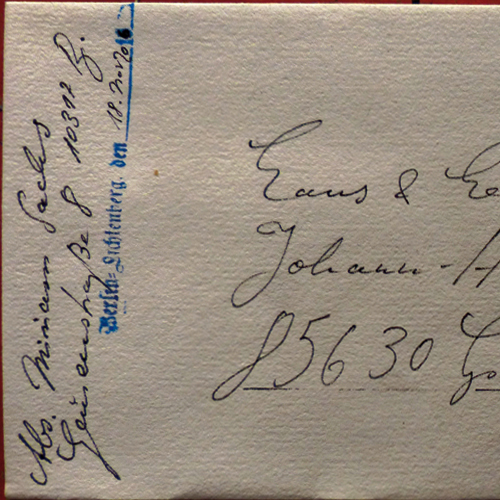 Abs. Miriam Sachs
Gäusenstraße 8 10317 B.
Berlin-Lichtenberg, den 18. Nov 2016
Hans &
Johann-
85630